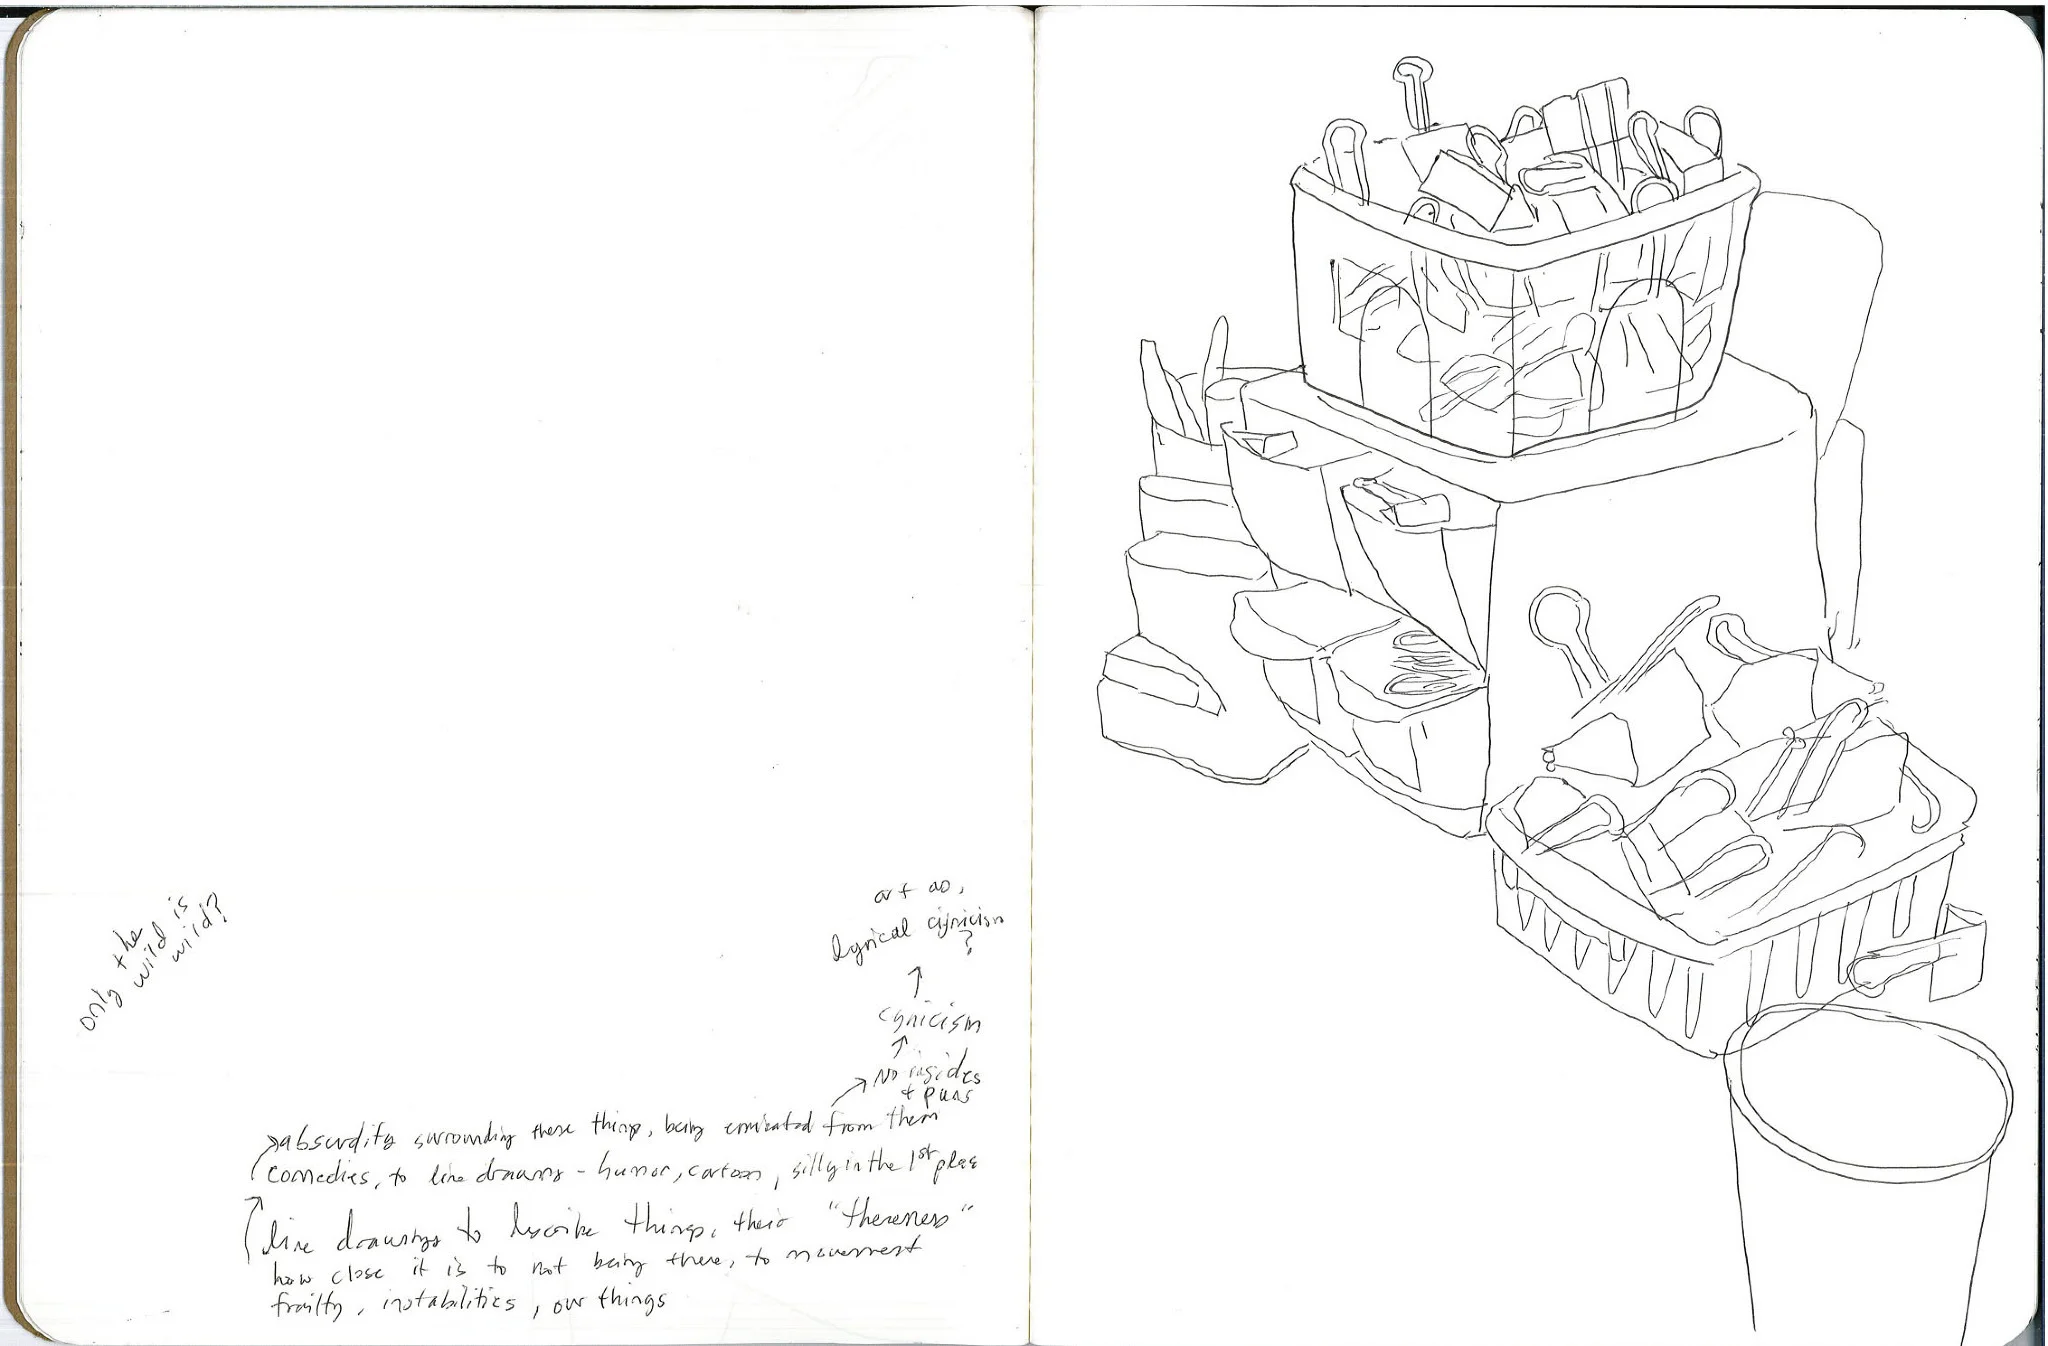 only
the
wild is
wild?
art as,
lyrical cynicism
?
cynicism
No insides
+ puns
absurdity surrounding these things, being emanated from them
comedies, to line drawings - humor, cartoon, silly in the 1st place
line drawings to describe things, their "thereness"
how close it is to not being there, to movement
frailty, instabilities, our things